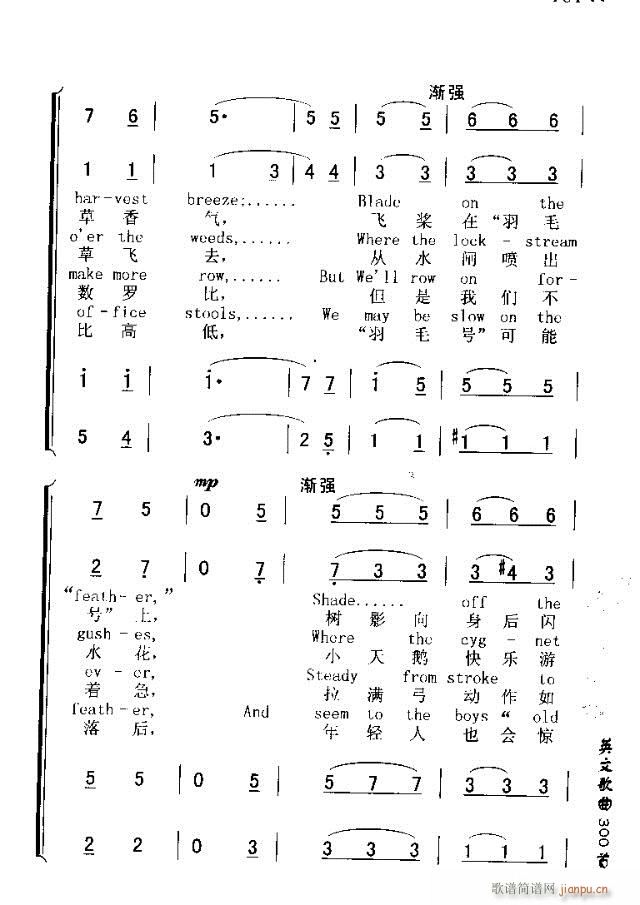 渐强
7 6 | 5· | 5 5 | 5 5 | 6 6 6
1 1 | 1 3 | 4 4 | 3 3 | 3 3 3
har-vest breeze;...... Blade on the
草 香 气, 飞 桨 在 “羽 毛
o'er the weeds,...... Where the lock - stream
草 飞 去, 从 水 闸 喷 出
make more row,...... But We'll row on for-
数 罗 比, 但 是 我 们 不
of-fice stools,...... We may be slow on the
比 高 低, “羽 毛 号” 可 能
i i | i· | 7 7 | i 5 | 5 5 5
5 4 | 3· | 2 5 | 1 1 | #1 1 1
mp 渐强
7 5 | 0 5 | 5 5 5 | 6 6 6
2 7 | 0 7 | 7 3 3 | 3 #4 3
“feath-er,” Shade...... off the
号” 上, 树 影 向 身 后 闪
gush-es, Where the cyg - net
水 花, 小 天 鹅 快 乐 游
ev - er, Steady from stroke to
着 急, 拉 满 弓 动 作 如
feath-er, And seem to the boys “old
落 后, 年 轻 人 也 会 惊
5 5 | 0 5 | 5 7 7 | 3 3 3
2 2 | 0 3 | 3 3 3 | 1 1 1
英文歌曲300首
歌谱简谱网
jianpu.cn